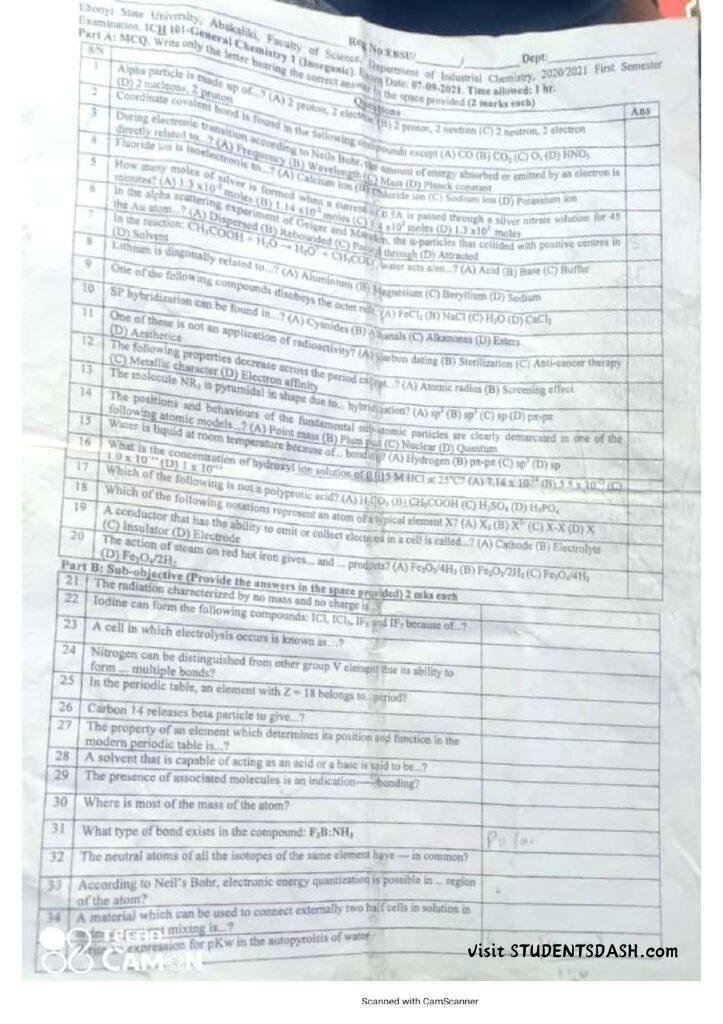 Ebonyi State University, Abakaliki, Faculty of Science, Department of Industrial Chemistry, 2020/2021 First Semester
Reg No:EBSU/ / Dept:
Examination. ICH 101-General Chemistry 1 (Inorganic). Exam Date: 07-09-2021. Time allowed: 1 hr.
Part A: MCQ. Write only the letter bearing the correct answer in the space provided (2 marks each)
S/N Questions Ans
1 Alpha particle is made up of...? (A) 2 proton, 2 electron (B) 2 proton, 2 neutron (C) 2 neutron, 2 electron
(D) 2 nucleons, 2 proton
2 Coordinate covalent bond is found in the following compounds except (A) CO (B) CO₂ (C) O₃ (D) HNO₃
3 During electronic transition according to Neils Bohr, the amount of energy absorbed or emitted by an electron is
directly related to...? (A) Frequency (B) Wavelength (C) Mass (D) Planck constant
4 Fluoride ion is isoelectronic to...? (A) Calcium ion (B) Chloride ion (C) Sodium ion (D) Potassium ion
5 How many moles of silver is formed when a current of 0.5A is passed through a silver nitrate solution for 45
minutes? (A) 1.3 x10⁻² moles (B) 1.14 x10⁻² moles (C) 1.4 x10² moles (D) 1.3 x10² moles
6 In the alpha scattering experiment of Geiger and Marsden, the α-particles that collided with positive centres in
the Au atom...? (A) Dispersed (B) Rebounded (C) Passed through (D) Attracted
7 In the reaction: CH₃COOH + H₂O → H₃O⁺ + CH₃COO⁻, water acts a/an...? (A) Acid (B) Base (C) Buffer
(D) Solvent
8 Lithium is diagonally related to...? (A) Aluminium (B) Magnesium (C) Beryllium (D) Sodium
9 One of the following compounds disobeys the octet rule (A) FeCl₂ (B) NaCl (C) H₂O (D) CaCl₂
10 SP hybridization can be found in...? (A) Cyanides (B) Alkanals (C) Alkanones (D) Esters
11 One of these is not an application of radioactivity? (A) Carbon dating (B) Sterilization (C) Anti-cancer therapy
(D) Aesthetics
12 The following properties decrease across the period except...? (A) Atomic radius (B) Screening effect
(C) Metallic character (D) Electron affinity
13 The molecule NR₃ is pyramidal in shape due to... hybridization? (A) sp³ (B) sp² (C) sp (D) pπ-pπ
14 The positions and behaviours of the fundamental sub-atomic particles are clearly demarcated in one of the
following atomic models...? (A) Point mass (B) Plum pud (C) Nuclear (D) Quantum
15 Water is liquid at room temperature because of... bonding? (A) Hydrogen (B) pπ-pπ (C) sp³ (D) sp
16 What is the concentration of hydroxyl ion solution of 0.015 M HCl at 25°C? (A) (B) (C)
(D)
17 Which of the following is not a polyprotic acid? (A) H₂CO₃ (B) CH₃COOH (C) H₂SO₄ (D) H₃PO₄
18 Which of the following notations represent an atom of a typical element X? (A) X₂ (B) (C) X-X (D) X
19 A conductor that has the ability to emit or collect electrons in a cell is called...? (A) Cathode (B) Electrolyte
(C) Insulator (D) Electrode
20 The action of steam on red hot iron gives... and ... products? (A) Fe₂O₃/4H₂ (B) Fe₂O₃/2H₂ (C) Fe₃O₄/4H₂
(D) Fe₃O₄/2H₂
Part B: Sub-objective (Provide the answers in the space provided) 2 mks each
21 The radiation characterized by no mass and no charge is...?
22 Iodine can form the following compounds: ICl, ICl₃, IF₅ and IF₇ because of...?
23 A cell in which electrolysis occurs is known as...?
24 Nitrogen can be distinguished from other group V element due its ability to
form ... multiple bonds?
25 In the periodic table, an element with Z = 18 belongs to...period?
26 Carbon 14 releases beta particle to give...?
27 The property of an element which determines its position and function in the
modern periodic table is...?
28 A solvent that is capable of acting as an acid or a base is said to be...?
29 The presence of associated molecules is an indication----bonding?
30 Where is most of the mass of the atom?
31 What type of bond exists in the compound: F₃B:NH₃
32 The neutral atoms of all the isotopes of the same element have --- in common?
33 According to Neil's Bohr, electronic energy quantization is possible in ... region
of the atom?
34 A material which can be used to connect externally two half cells in solution in
mixing is...?
expression for pKw in the autopyrolsis of water
TECNO
CAMON
visit STUDENTSDASH.com
Scanned with CamScanner